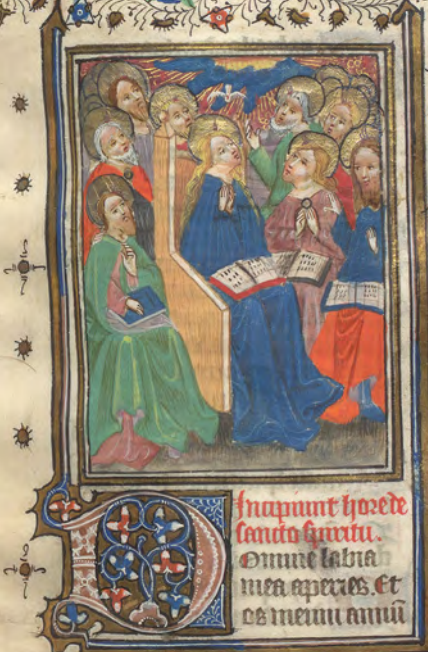 Incipiunt hore de
sancto spiritu.
Domine labia
mea aperies. Et
os meum annun